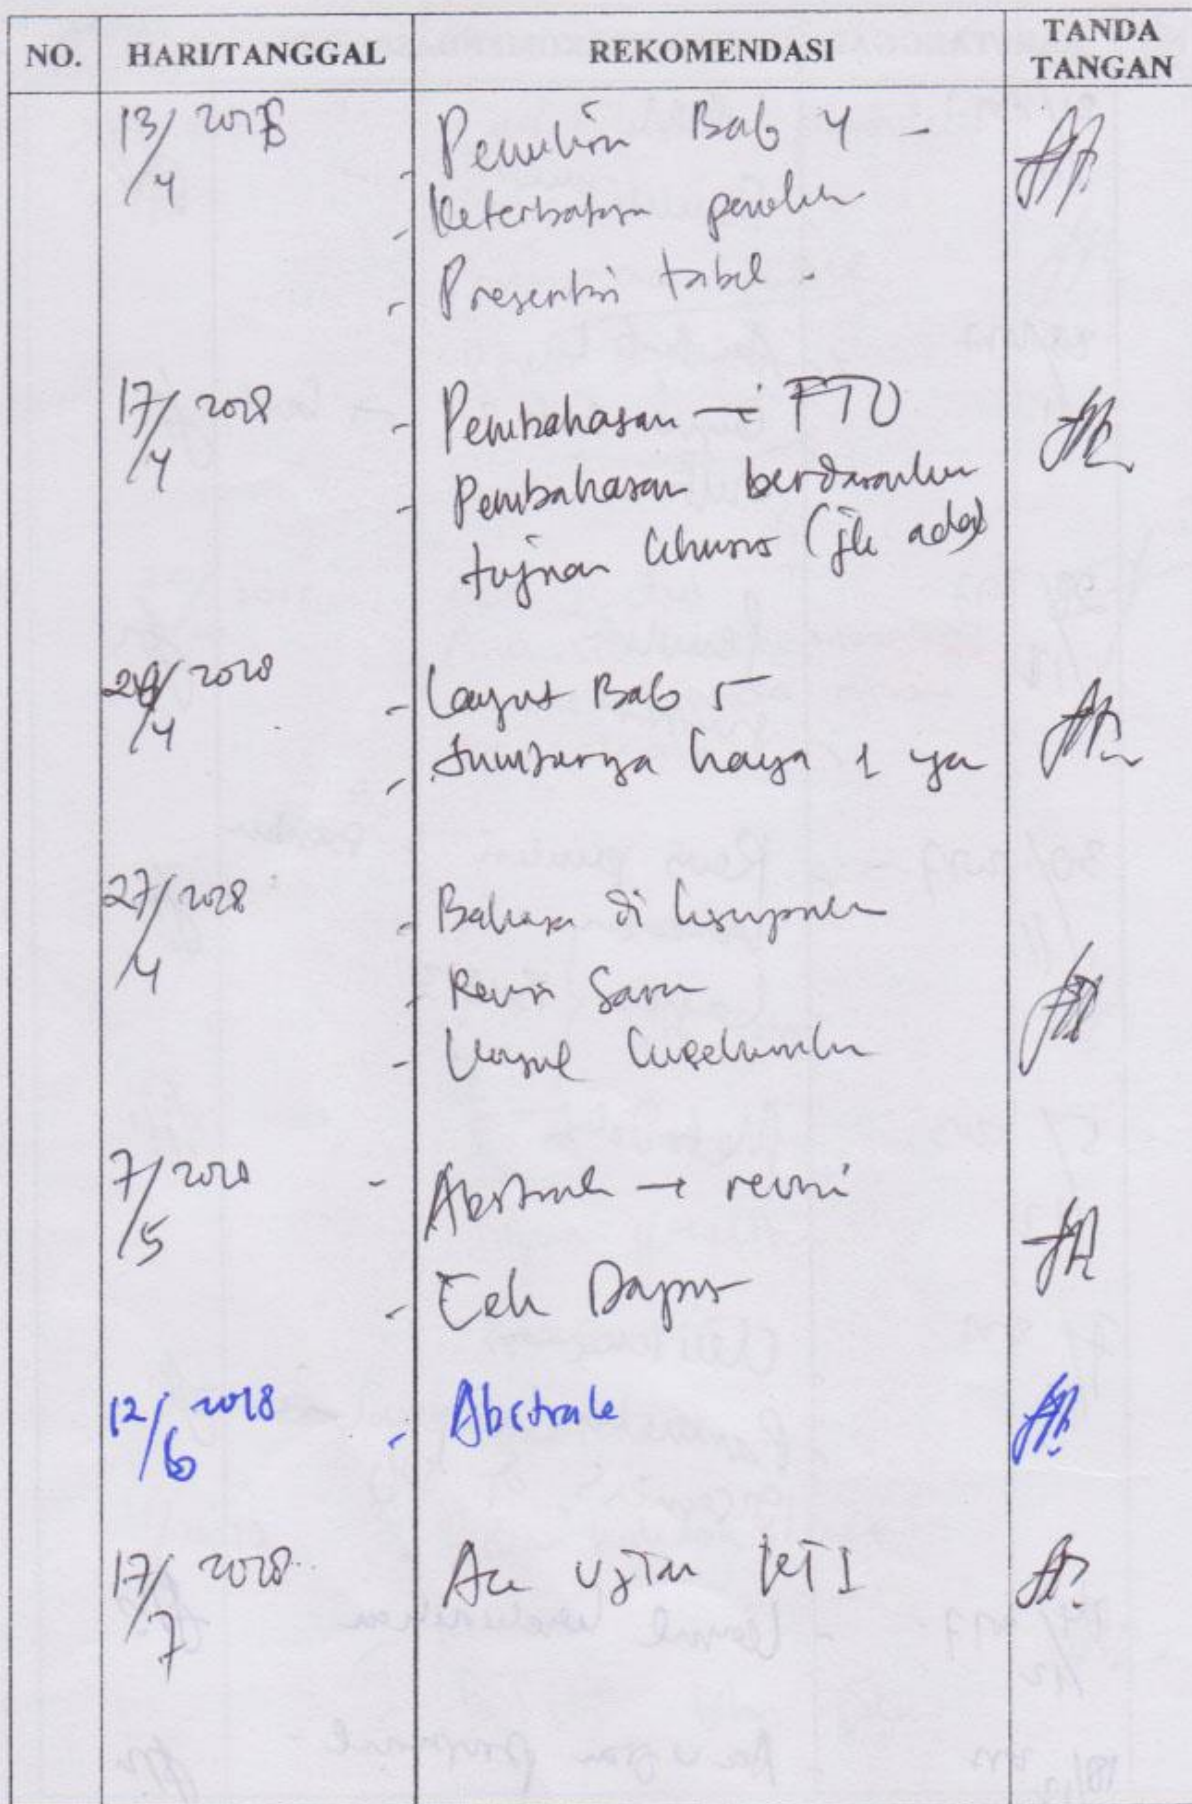 NO. HARI/TANGGAL REKOMENDASI TANDA TANGAN
13/4 2018 - Penulisan Bab 4 -
- Keterbatasan penelitian
- Presentasi tabel -
17/4 2018 - Pembahasan → FTU
- Pembahasan berdasarkan
tujuan khusus (jk ada)
24/4 2018 - Lanjut Bab 5
- hanya 1 ya
27/4 2018 - Bahasa di kesimpulan
- Revisi Saran
- keseluruhan
7/5 2018 - Abstrak → revisi
- Cek Dapus
12/6 2018 - Abstrak
17/7 2018 Acc Ujian KTI